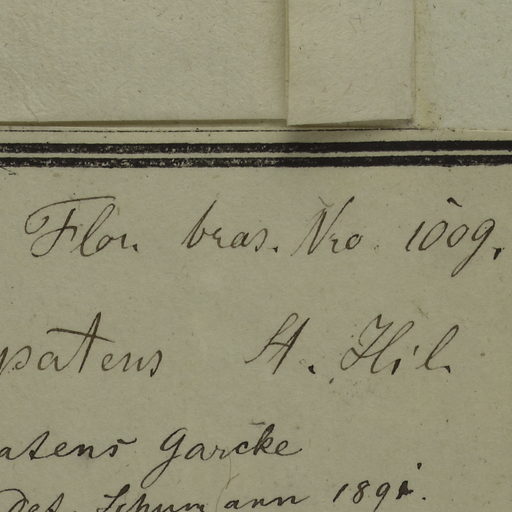 Flor. bras. Nro 1009.
patens St. Hil.
atens Garcke
Det. Schumann 1891.